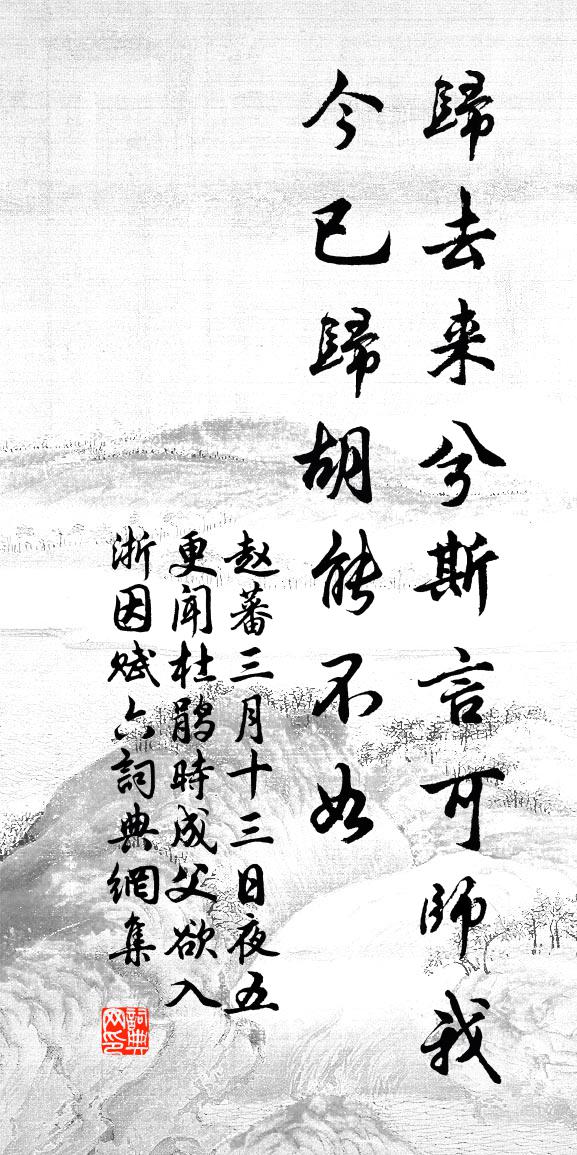 歸去来兮斯言可師我
今已歸胡能不如
赵蕃三月十三日夜五
更闻杜鹃時成父欲入
浙因赋六詞典網集
詞典
网印